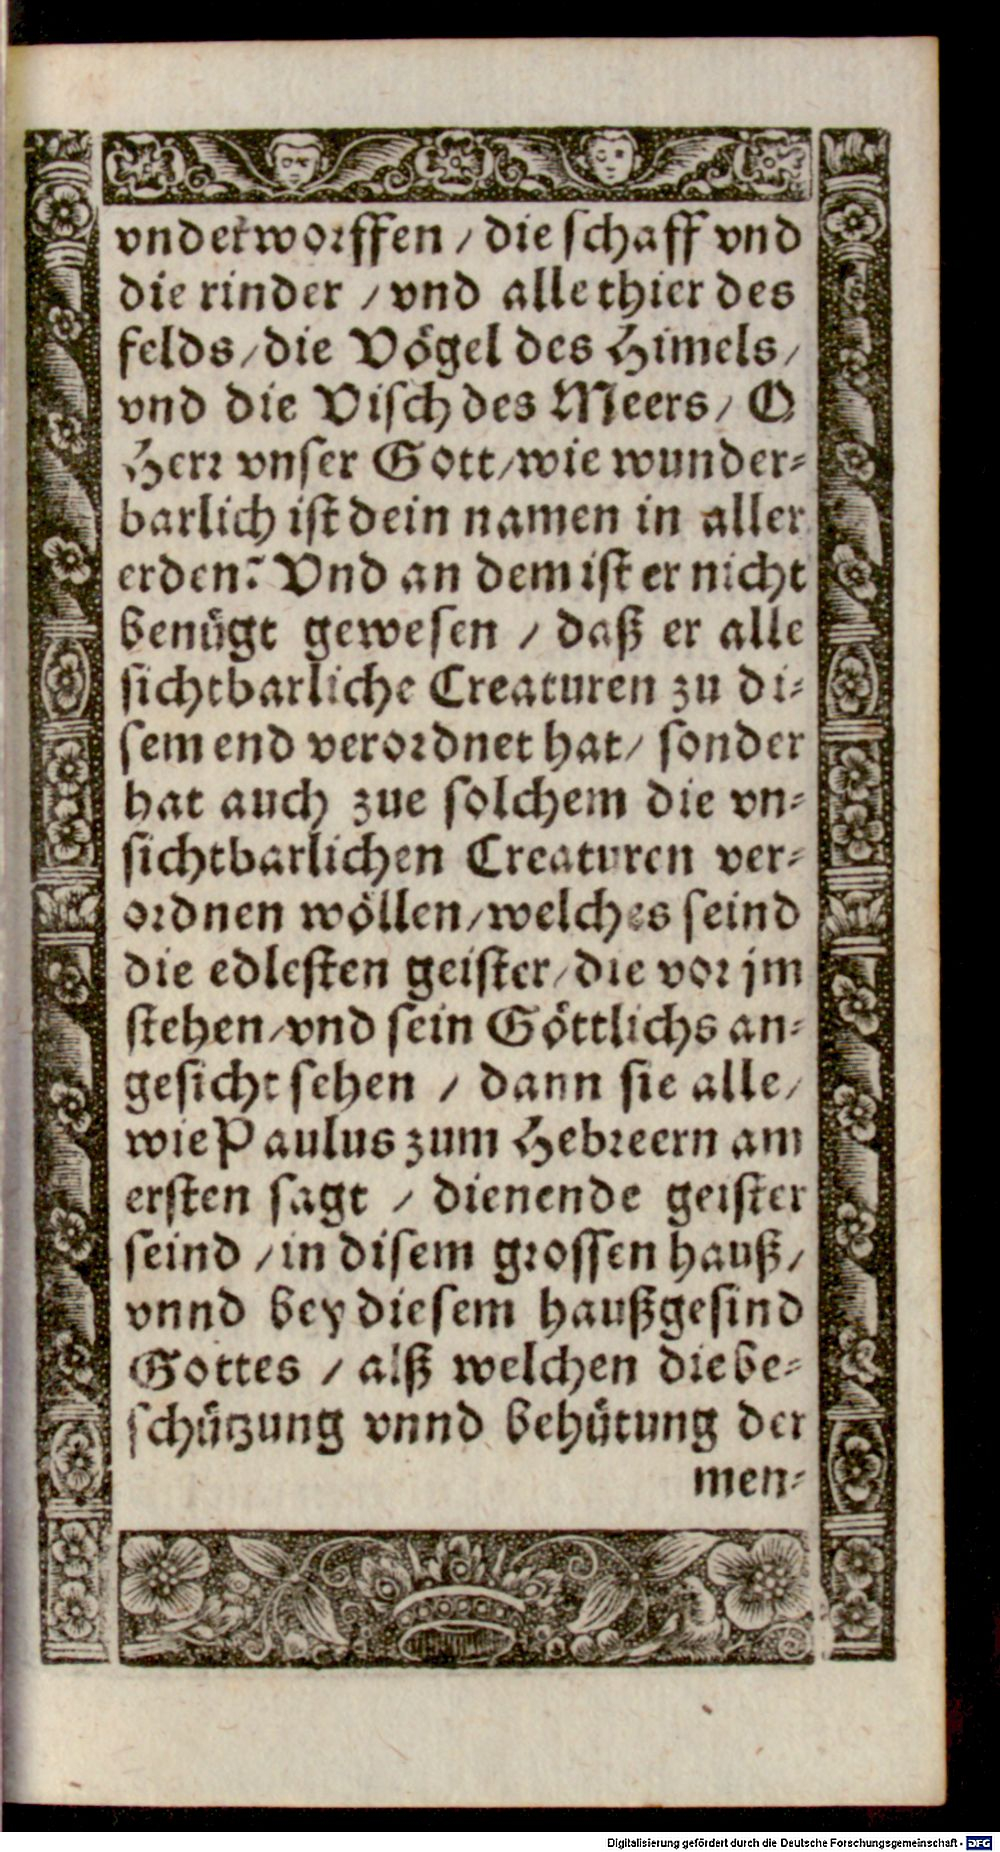 vnderworffen / die schaff vnd
die rinder / vnd alle thier des
felds / die Vögel des Himels /
vnd die Visch des Meers / O
Herr vnser Gott / wie wunder⸗
barlich ist dein namen in aller
erden? Vnd an dem ist er nicht
benügt gewesen / daß er alle
sichtbarliche Creaturen zu di⸗
sem end verordnet hat / sonder
hat auch zue solchem die vn⸗
sichtbarlichen Creaturen ver⸗
ordnen wöllen / welches seind
die edlesten geister / die vor jm
stehen / vnd sein Göttlichs an⸗
gesicht sehen / dann sie alle /
wie Paulus zum Hebreern am
ersten sagt / dienende geister
seind / in disem grossen hauß /
vnnd bey diesem haußgesind
Gottes / alß welchen die be⸗
schützung vnnd behütung der
men⸗
Digitalisierung gefördert durch die Deutsche Forschungsgemeinschaft - DFG